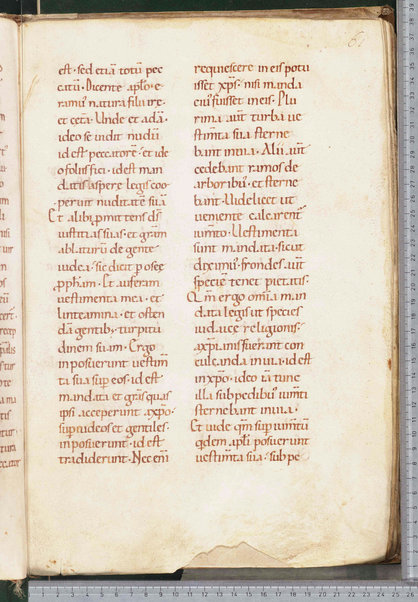 est· sed etiā totū pec
catū· Dicente aplo· e
ramus natura filii ire·
et cetā· Unde et adā·
ideo se vidit nudū
id est peccatorē· et ide
o foliis fici· id est man
datis aspere legis coo
peruit nuditatē suā
Et alibi promittens ds
iustitias suas· et gram
ablaturū de gente
iudea· sic dicit p osee
ppham· Et auferam
vestimenta mea· et
linteamina· et osten
dā gentib; turpitu
dinem suam· Ergo
inposuerunt vestim
ta sua sup eos· id est
mandata et gras quas
ipsi acceperunt a xpo·
sup iudeos et gentiles·
inposuerunt· id est
tradiderunt· Nec eni
requiescere in eis potu
isset xps· nisi manda
ciuis fuisset in eis· Plu
rima aut turba ve
stimta sua sterne
bant in via· Alii aut
cedebant ramos de
arboribus· et sterne
bant· Videlicet ut
veniente calcarent
iumto· Vestimenta
sunt mandata· sicut
diximus· frondes aut
specie tenet pietatis·
Qm ergo omia man
data legis ut species
iudaice religionis·
a xpianis fuerant con
culcanda in via· id est
in xpo· ideo ea tunc
illa sub pedibus iumti
sternebant in via·
Et vide qm sup iumtū
qdem apli posuerunt
vestimta sua· sub pe